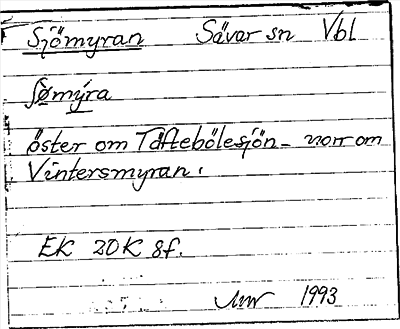 Sjömyran Sävar sn Vbl
Sømýra
öster om Täftebölesjön - norr om
Vintersmyran.
EK 20K 8f.
1993